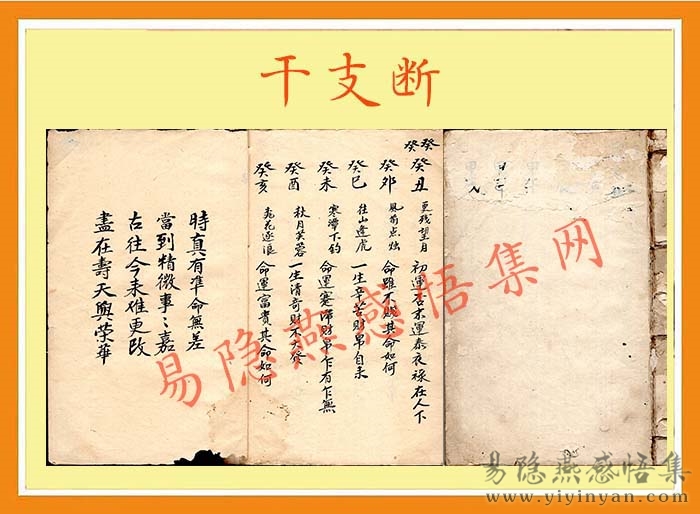 干支断
癸癸
癸丑 更残望月 初運否末運泰衣祿在人下
癸卯 風前点烛 命雖不賤其命如何
癸巳 往山逢虎 一生辛苦財帛自来
癸未 寒潭下釣 命運蹇滞財帛乍有乍無
癸酉 秋月芙蓉 一生清奇財不大發
癸亥 亮花逐浪 命運富貴其命如何
時真有準命無差
當到精微事〻嘉
古往今来难更改
盡在壽夭與榮華
易隐燕感悟集网
易隐燕感悟集
www.yiyinyan.com